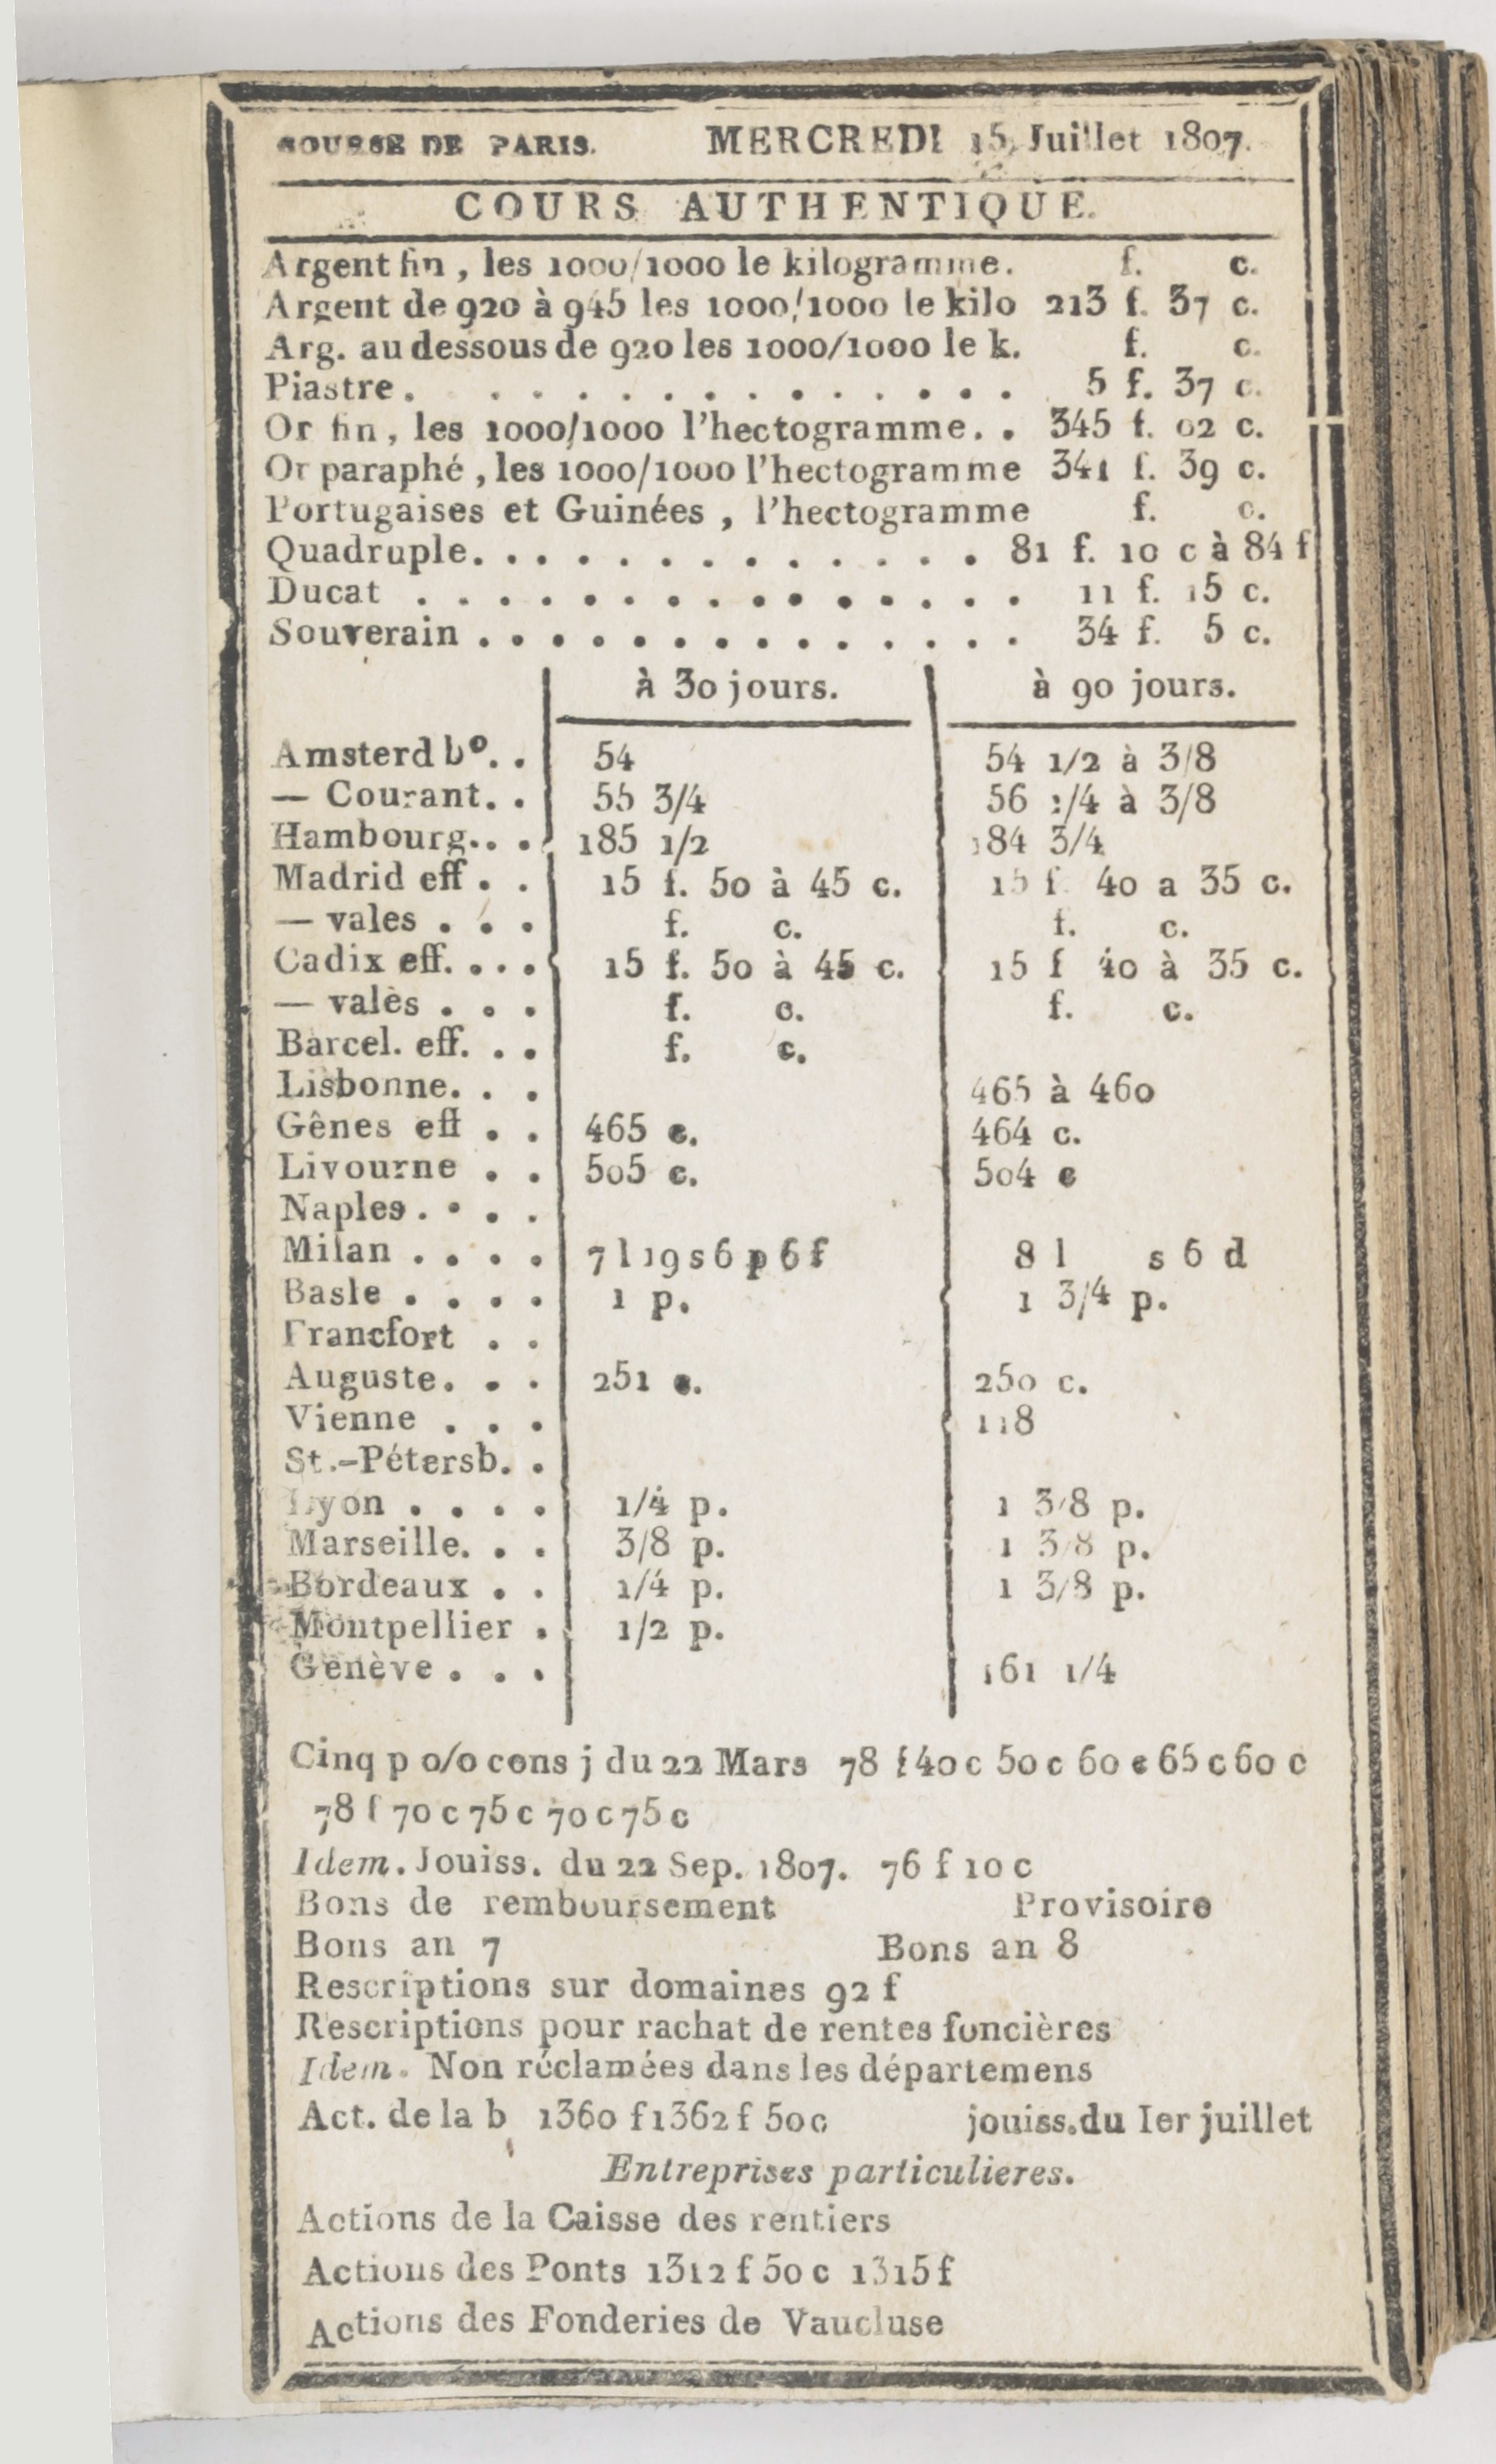 BOURSE DE PARIS. MERCREDI 15 Juillet 1807.
COURS AUTHENTIQUE.
Argent fin, les 1000/1000 le kilogramme. f. c.
Argent de 920 à 945 les 1000/1000 le kilo 213 f. 37 c.
Arg. au dessous de 920 les 1000/1000 le k. f. c.
Piastre . . . . . . . . . . . . . . 5 f. 37 c.
Or fin, les 1000/1000 l'hectogramme. . 345 f. 02 c.
Or paraphé, les 1000/1000 l'hectogramme 341 f. 39 c.
Portugaises et Guinées, l'hectogramme f. c.
Quadruple. . . . . . . . . . . . . 81 f. 10 c à 84 f
Ducat . . . . . . . . . . . . . . . 11 f. 15 c.
Souverain . . . . . . . . . . . . . . 34 f. 5 c.
à 30 jours. à 90 jours.
Amsterd bº. . 54 54 1/2 à 3/8
— Courant. . 55 3/4 56 1/4 à 3/8
Hambourg. . . 185 1/2 184 3/4
Madrid eff . . 15 f. 50 à 45 c. 15 f 40 a 35 c.
— vales . . . f. c. f. c.
Cadix eff. . . . 15 f. 50 à 45 c. 15 f 40 à 35 c.
— valès . . . f. c. f. c.
Barcel. eff. . . f. c.
Lisbonne. . . 465 à 460
Gênes eff . . 465 c. 464 c.
Livourne . . 505 c. 504 c
Naples . . . .
Milan . . . . 7 l 19 s 6 p 6 f 8 l s 6 d
Basle . . . . 1 p. 1 3/4 p.
Francfort . .
Auguste. . . 251 c. 250 c.
Vienne . . . 118
St.-Pétersb. .
Lyon . . . . 1/4 p. 1 3/8 p.
Marseille. . . 3/8 p. 1 3/8 p.
Bordeaux . . 1/4 p. 1 3/8 p.
Montpellier . 1/2 p.
Genève . . . 161 1/4
Cinq p 0/0 cons j du 22 Mars 78 f 40 c 50 c 60 c 65 c 60 c
78 f 70 c 75 c 70 c 75 c
Idem. Jouiss. du 22 Sep. 1807. 76 f 10 c
Bons de remboursement Provisoire
Bons an 7 Bons an 8
Rescriptions sur domaines 92 f
Rescriptions pour rachat de rentes foncières
Idem. Non réclamées dans les départemens
Act. de la b 1360 f 1362 f 50 c jouiss. du Ier juillet
Entreprises particulieres.
Actions de la Caisse des rentiers
Actions des Ponts 1312 f 50 c 1315 f
Actions des Fonderies de Vaucluse